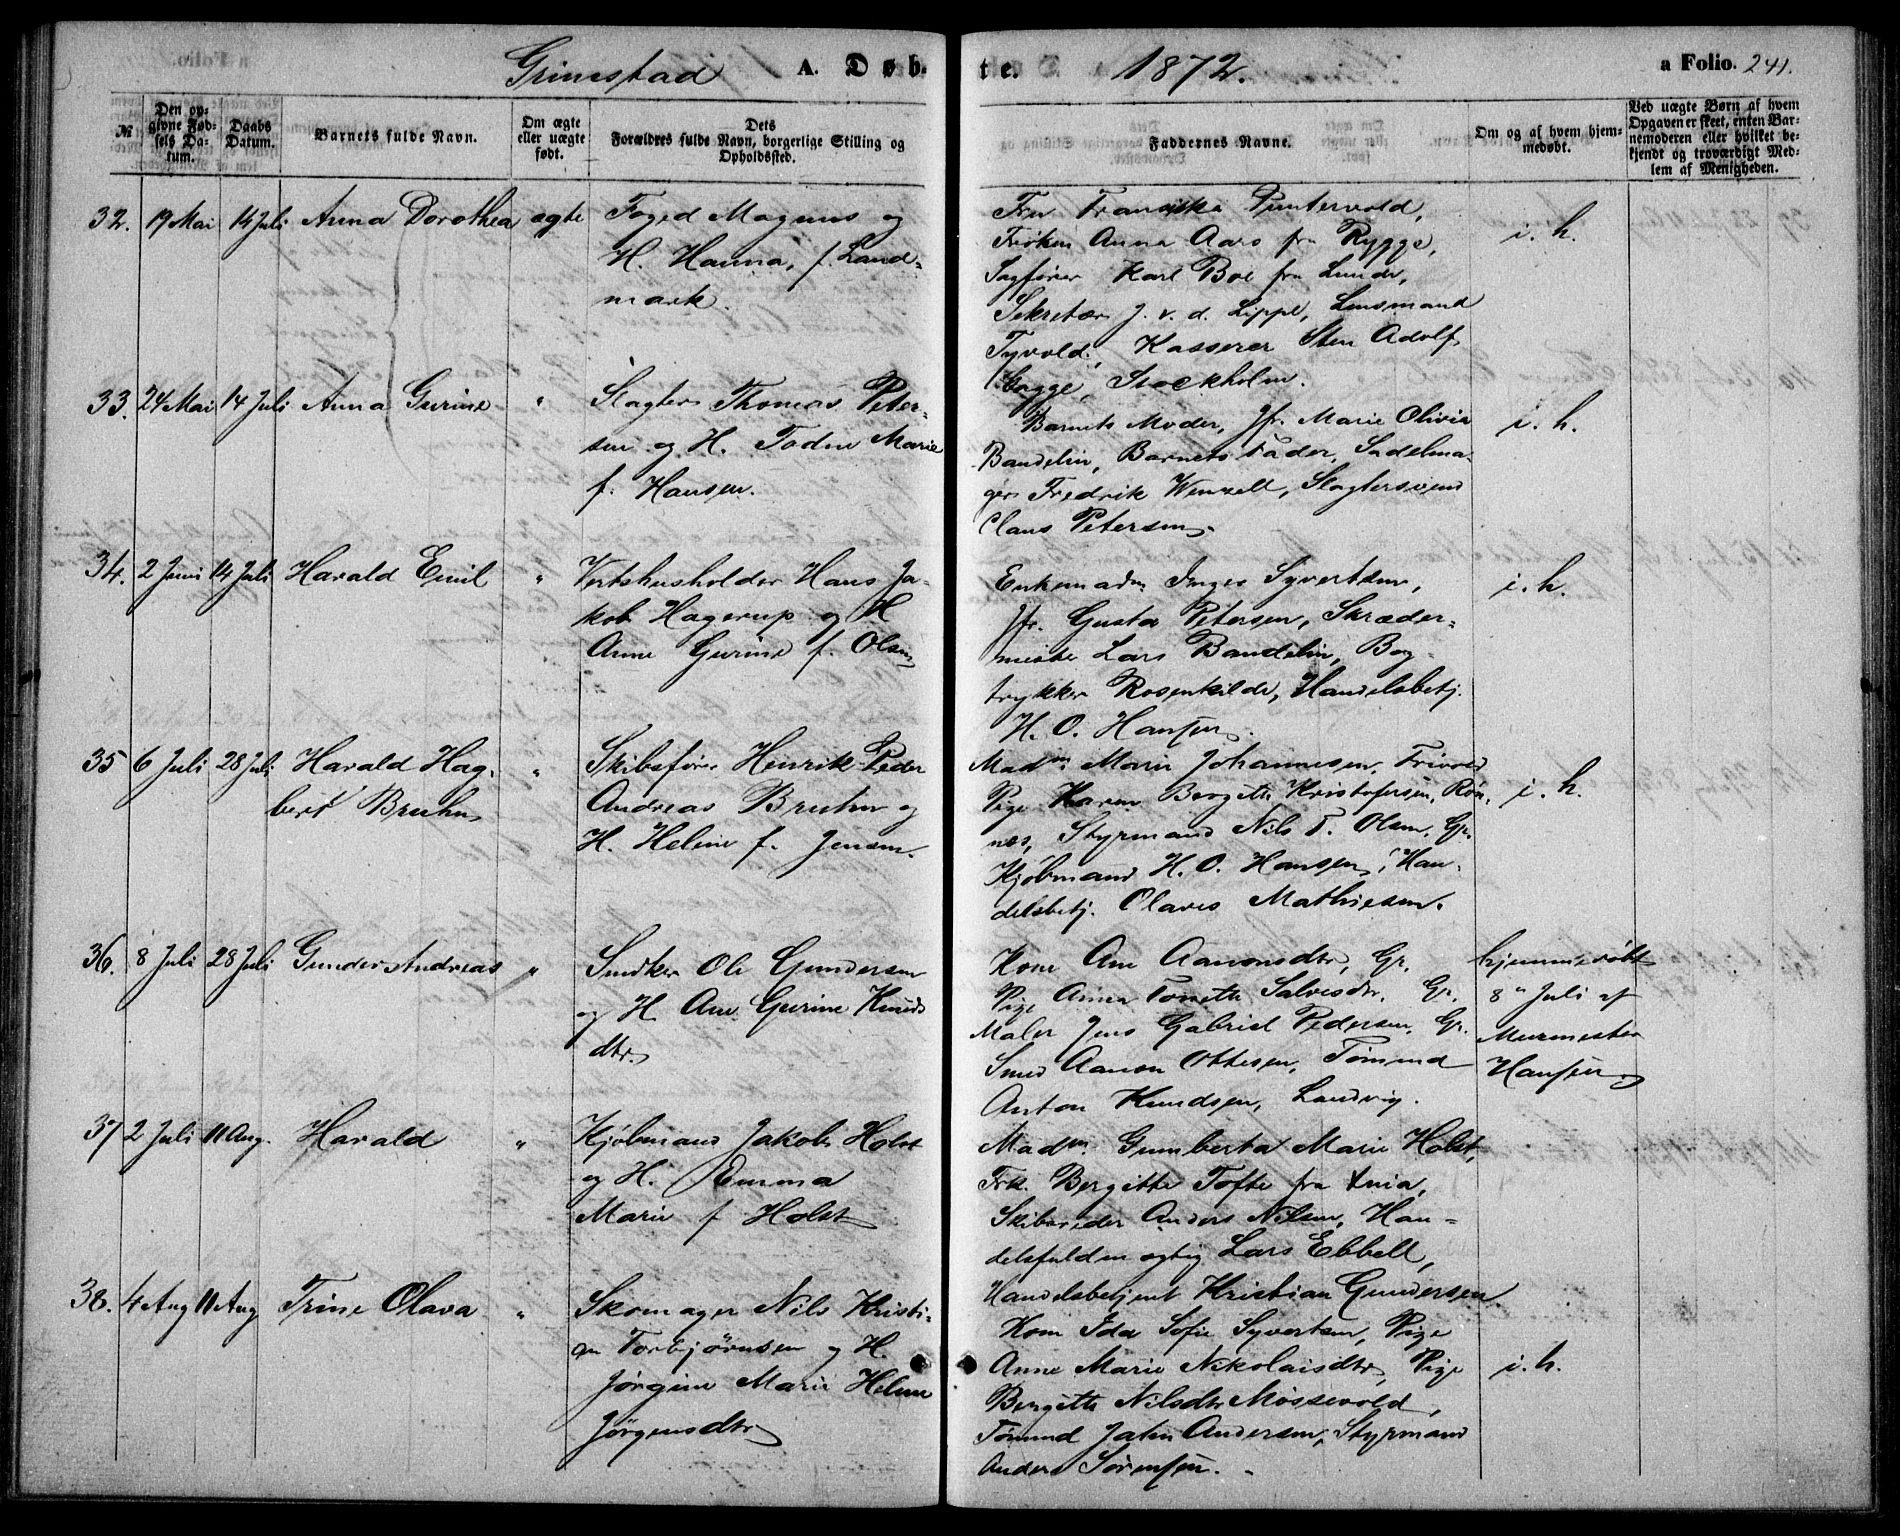 Grimstad A. Døb-
te. 1872. a Folio. 241.
№
Den op-
givne Fød-
sels Da-
tum.
Daabs
Datum.
Barnets fulde Navn.
Om ægte
eller uægte
født.
Dets
Forældres fulde Navn, borgerlige Stilling og
Opholdssted.
Faddernes Navne.
Om og af hvem hjem-
medøbt.
Ved uægte Børn af hvem
Opgaven er skeet, enten Bar-
nemoderen eller hvilket be-
kjendt og troværdigt Med-
lem af Menigheden.
32. 19 Mai 14 Juli Anna Dorothea ægte
Foged Magnus og
H. Hanna, f. Land-
mark.
Fru Franciska Puntervold,
Frøken Anna Aars fra Rygge,
Sagfører Karl Boe fra Lunde,
Sekretær J. v. d. Lippe, Lensmand
Tyvold, Kasserer Sten Adolf
Gagge, Stockholm.
i. h.
33. 24 Mai 14 Juli Anna Gurine "
Slagter Thomas Peter-
sen og H. Todne Marie
f. Hansen.
Barnets Moder, Jfr. Marie Olivia
Bandelin, Barnets Fader, Sadelma-
ger Fredrik Wenzell, Slagtersvend
Claus Petersen.
i. h.
34. 2 Juni 14 Juli Harald Emil "
Vertshusholder Hans Ja-
kob Hagerup og H
Anne Gurine f. Olsen
Enkemadm Inger Syvertsen,
Jfr. Gusta Petersen, Skræder-
mester Lars Bandelin, Bog-
trykker Rosenkilde, Handelsbetj.
H. O. Hansen.
i. h.
35 6 Juli 28 Juli Harald Hag-
bert Bruhn "
Skibsfører Henrik Peder
Andreas Bruhn og
H. Heline f. Jensen.
Madm. Marie Johannesen, Frivold
Pige Karen Bergitte Kristofersen, Røn-
nes, Styrmand Nils T. Olsen, Gr.
Kjøbmand H. O. Hansen, Han-
delsbetj. Olaves Mathiesen.
i. h.
36. 8 Juli 28 Juli Gunder Andreas "
Snedker Ole Gundersen
og H. Ane Gurine Knuds
dtr.
Kone Ane Aanonsdtr, Gr.
Pige Anna Tomette Salvesdtr. Gr,
Maler Jens Gabriel Pedersen, Gr.
Smed Aanon Ottesen, Tømmd
Anton Knudsen, Landvig.
hjemmedøbt
8" Juli af
Murmester
Hansen
37 2 Juli 11 Aug. Harald "
Kjøbmand Jakob Holst
og H. Emma
Marie f Holst
Madm. Gumberta Marie Holst,
Frk. Bergitte Tofte fra Xnia,
Skibsreder Anders Nilsen, Han-
delsfuldmægtig Lars Ebbell,
Handelsbetjent Kristian Gundersen
38. 4 Aug 11 Aug Trine Olava "
Skomager Nils Kristi-
an Torbjørnsen og H.
Jørgine Marie Helene
Jørgensdtr
Kone Ida Sofie Syvertsen, Pige
Anne Marie Nikolaisdtr, Pige
Bergitte Nilsdtr Møssevold,
Tømmd Jahn Andersen, Styrmand
Anders Sørensen.
i. h.